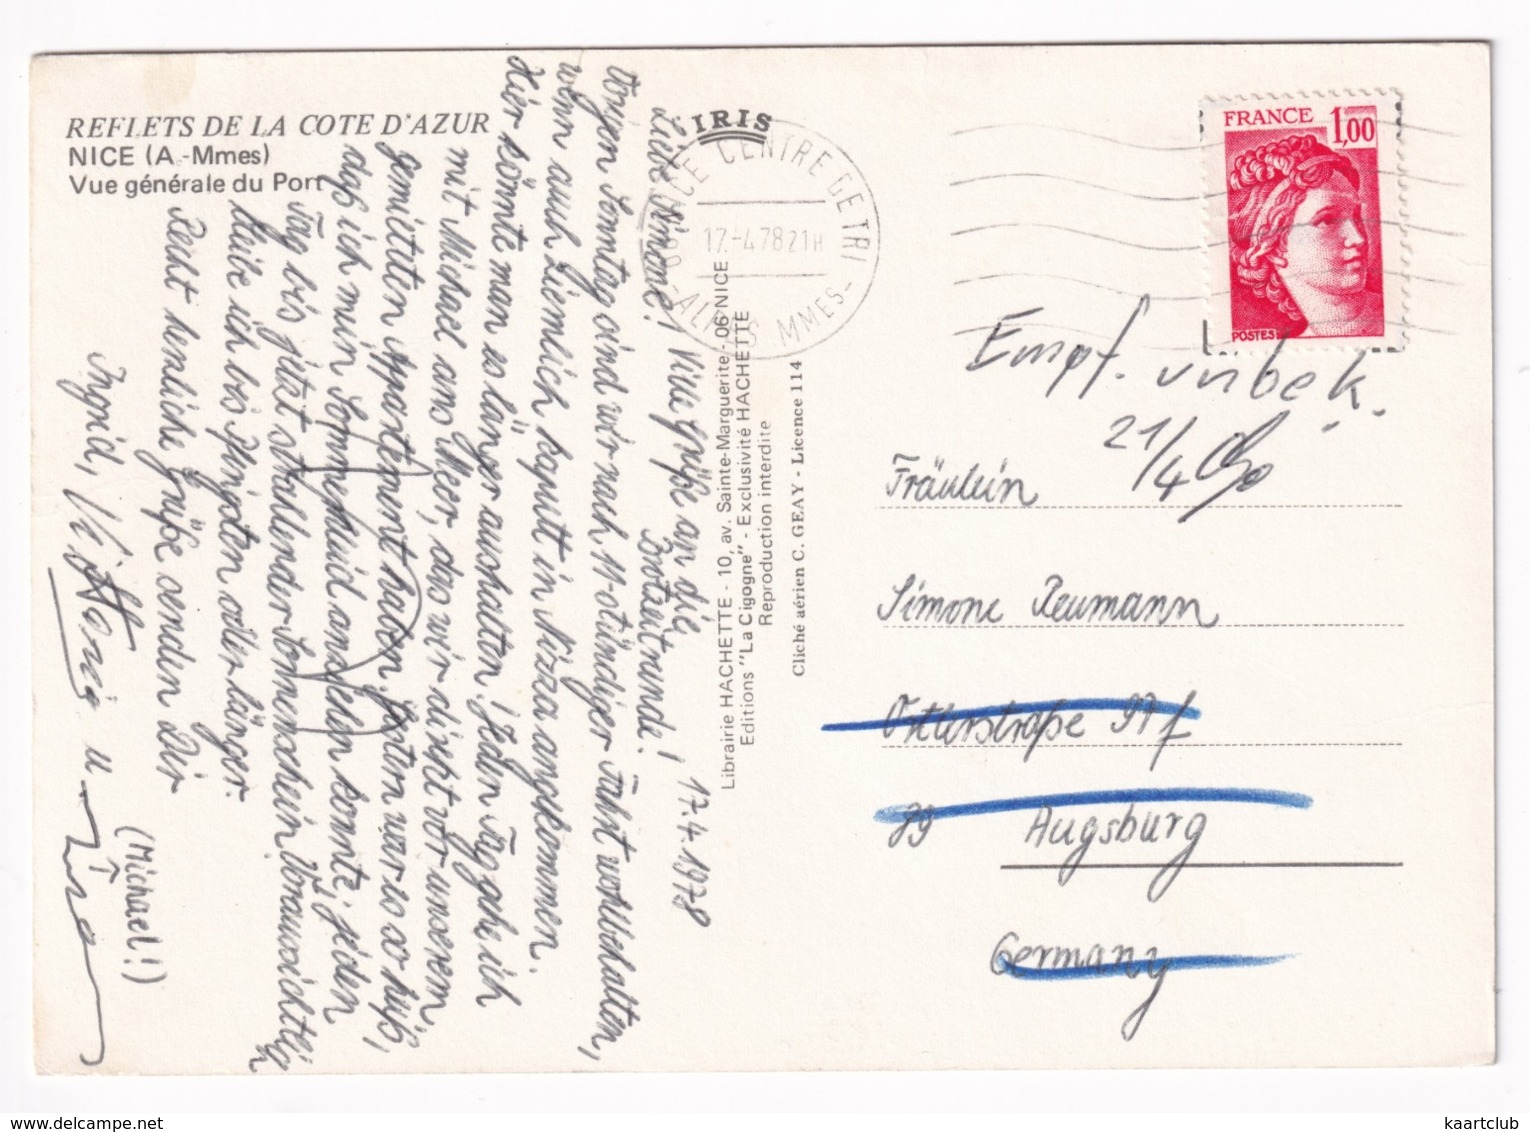 REFLETS DE LA COTE D'AZUR
NICE (A.-Mmes)
Vue générale du Port
IRIS
NICE CENTRE GE TRI
17.-4.78 21H
06-ALPES MMES-
FRANCE 1,00
POSTES
Librairie HACHETTE - 10, av. Sainte-Marguerite - 06 NICE
Editions "La Cigogne" - Exclusivité HACHETTE
Reproduction interdite
Cliché aérien C. GEAY - Licence 114
17.4.1978
Liebe Simone! Viele Grüße an die
Brotzeitrunde!
Vorigen Sonntag sind wir nach 11-stündiger Fahrt wohlbehalten,
wenn auch ziemlich kaputt in Nizza angekommen.
Hier könnte man es länger aushalten! Jeden Tag gehe ich
mit Michael ans Meer, das wir direkt vor unserem
gemieteten Appartement haben. Gestern war es so heiß,
daß ich mein Sommerkleid anziehen konnte; jeden
Tag bis jetzt strahlender Sonnenschein! Voraussichtlich
bleibe ich bis Pfingsten oder länger.
Recht herzliche Grüße senden Dir
Ingrid,
u.
(Michael!)
Empf. unbek.
21/4
Fräulein
Simone Reumann
Ottostraße 97f
89 Augsburg
Germany
kaartclub
www.delcampe.net